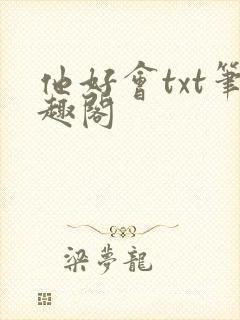 他好會txt筆
趣閣
梁夢龍